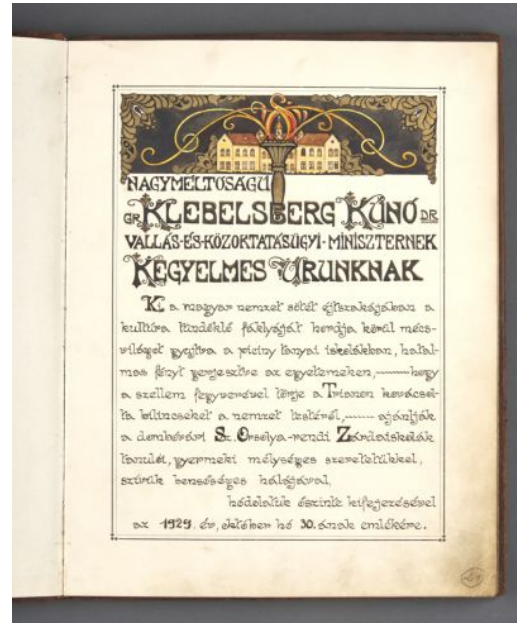 NAGYMÉLTÓSÁGU
GR. KLEBELSBERG KUNÓ DR.
VALLÁS-ÉS-KÖZOKTATÁSÜGYI-MINISZTERNEK
KEGYELMES URUNKNAK
Ki a magyar nemzet sötét éjtszakájában a
kultúra tündéklő fáklyáját hordja körül mécs-
világot gyujtva a piciny tanyai iskolákban, hatal-
mas fényt gerjesztve az egyetemeken,——hogy
a szellem fegyverével törje a Trianon kovácsol-
ta bilincseket a nemzet testéről,—— ajánlják
a dombóvári Sz. Orsolya-rendi Zárdaiskolák
tanulói, gyermeki mélységes szeretetükkel,
szivük bensőséges hálájával,
hódolatuk őszinte kifejezésével
az 1929. év, október hó 30.-ának emlékére.